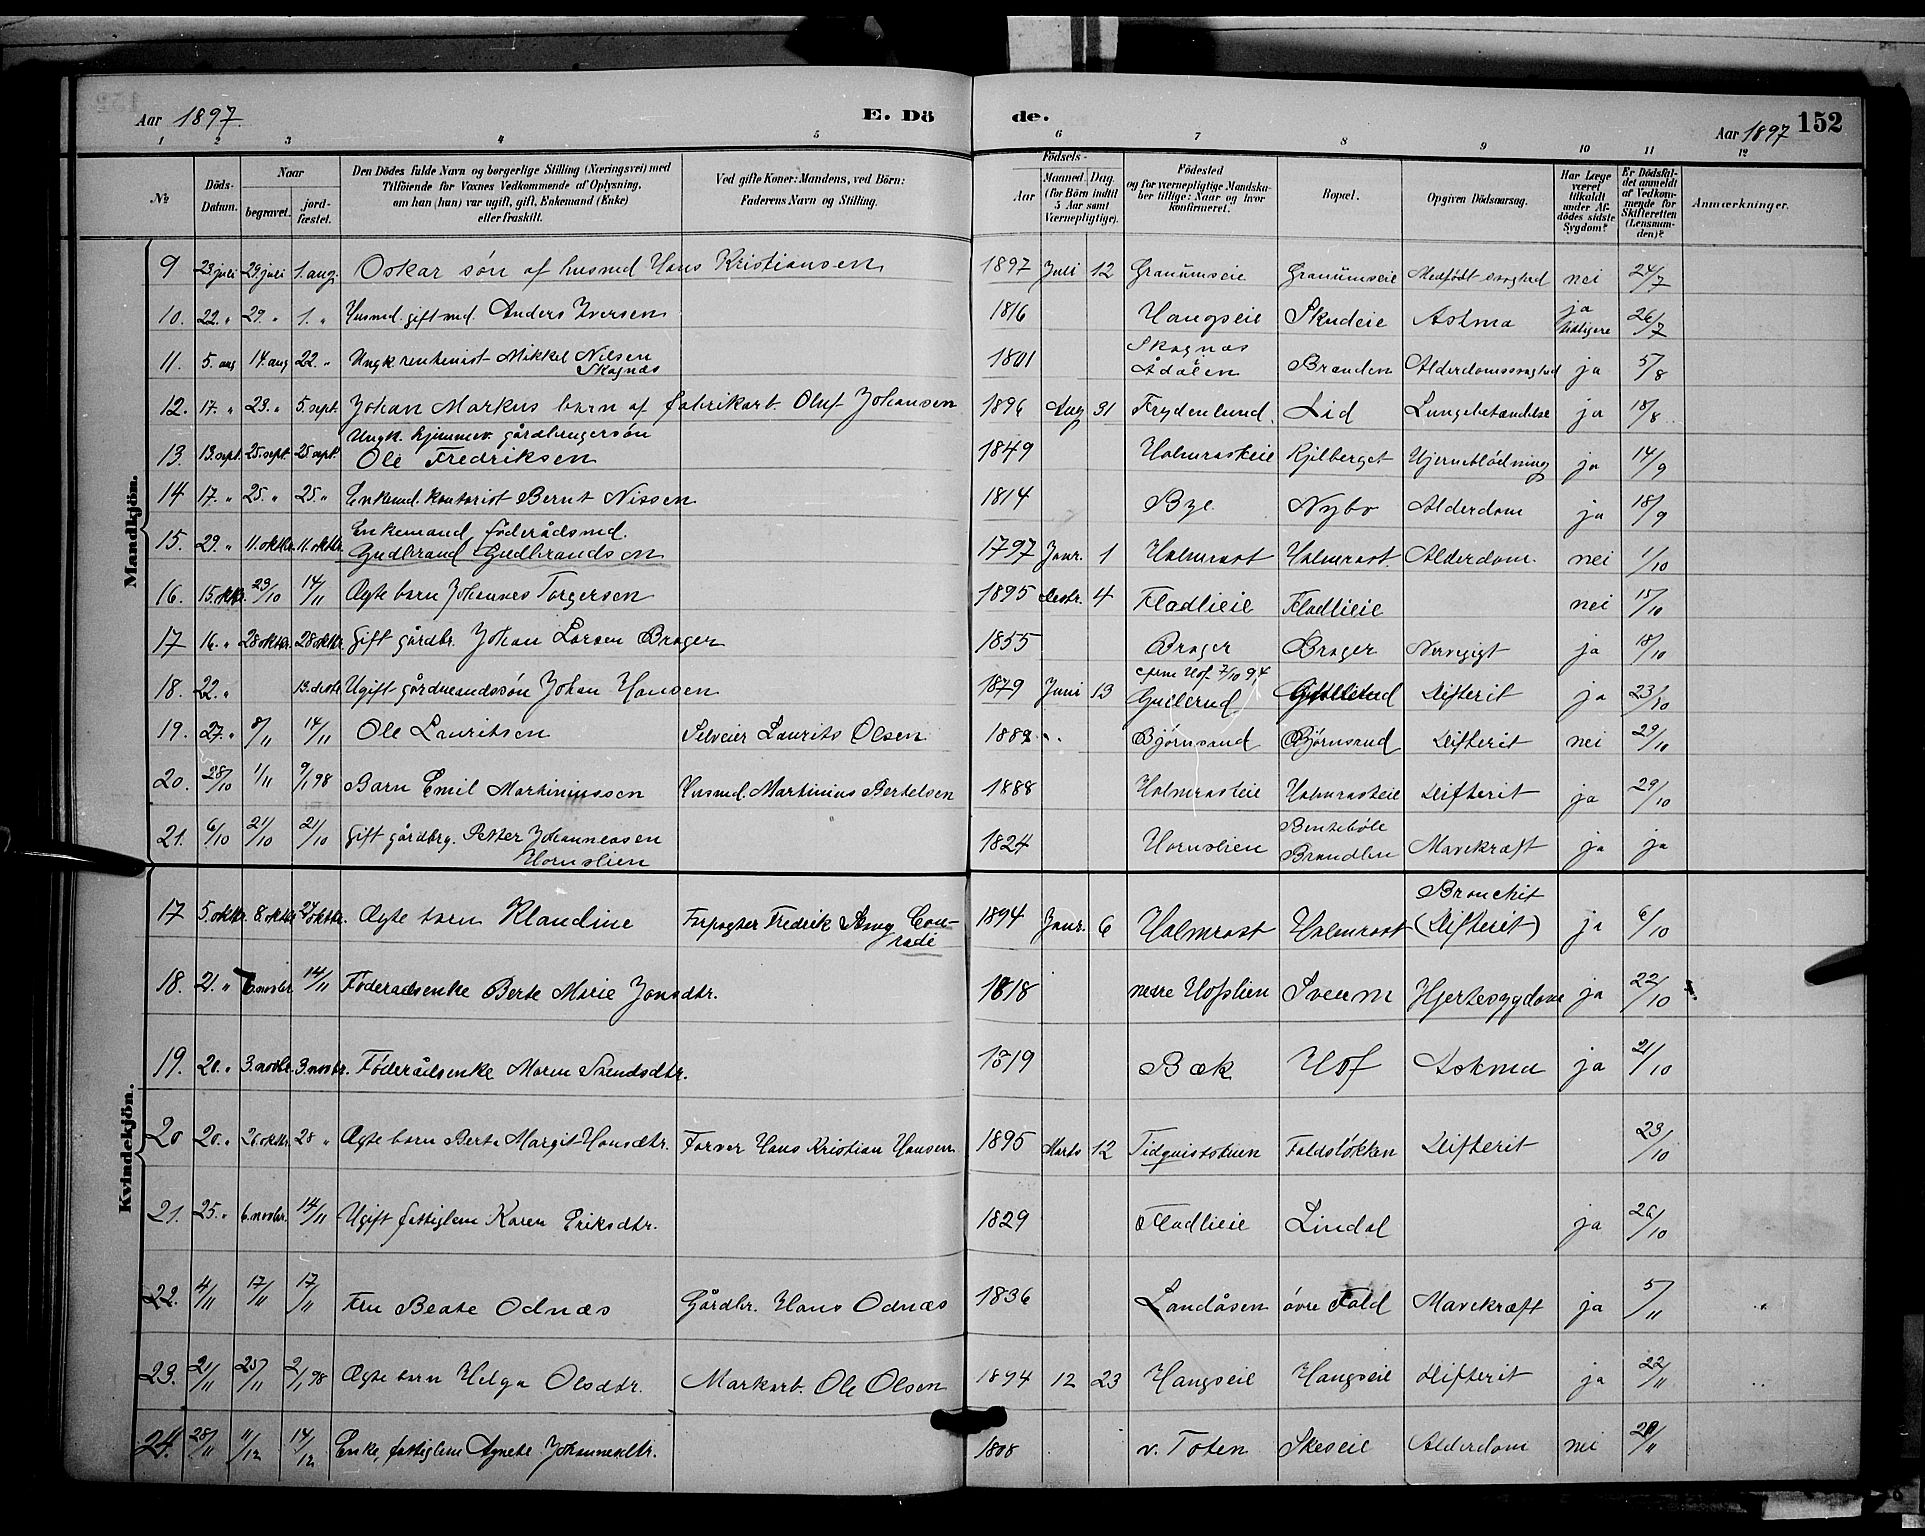 Aar 1897. E. Dö de. Aar 1897 152
1 2 3 4 5 6 7 8 9 10 11 12
№ Döds-Datum. Naar begravet. jord-fæstet. Den Dödes fulde Navn og borgerlige Stilling (Næringsvei) med Tilföiende for Voxnes Vedkommende af Oplysning, om han (hun) var ugift, gift, Enkemand (Enke) eller fraskilt. Ved gifte Koner: Mandens, ved Börn: Faderens Navn og Stilling. Födsels- Aar Maaned. Dag. (for Börn indtil 5 Aar samt Værnepligtige). Födested og for værnepligtige Mandskaber tillige: Naar og hvor konfirmeret. Bopæl. Opgiven Dödsaarsag. Har Læge været tilkaldt under Afdödes sidste Sygdom? Er Dödsfaldet anmeldt af Vedkommende for Skifteretten (Lensmanden)? Anmærkninger.
Mandkjön.
9 23 juli 29 juli 1. aug. Oskar søn af husmd Hans Kristiansen 1897 Juli 12 Granumseie Granumseie Medfødt svaghed nei 24/7
10. 22. " 29. " 1. " Husmd. gift md. Anders Iversen 1816 Haugseie Skudeie Astma ja tidligere 26/7
11. 5. aug 14. aug 22. " Ungk. rentenist Mikkel Nilsen Skognæs 1801 Skognæs i Ådalen Branden Alderdomssvaghed ja 5/8
12. 17. " 23. " 5. sept. Johan Markus barn af fabrikarb. Oluf Johansen 1896 Aug 31 Frydenlund. Lid Lungebetændelse ja 18/8
13. 13. sept. 25. sept. 25 sept. Ungk. hjemmev. gårdbrugersøn Ole Fredriksen 1849 Holmrasteie Kjilberget Hjerneblødning ja 14/9
14 17. " 25. " 25. " Enkemd. kontorist Bernt Nissen 1814 Bye Nybo Alderdom ja 18/9
15. 29. " 11. oktbr. 11. oktbr. Enkemand føderådsmd. Gudbrand Gudbrandsen 1797 Janr. 1 Holmrast Holmrast. Alderdom. nei 1/10
16. 15. oktbr. 23/10 14/11 Ægte barn Johannes Torgersen 1895 Decbr. 4 Fladlieie Fladlieie nei 15/10
17 16. " 28 oktbr. 28 oktbr. Gift gårdbr. Johan Larsen Brager 1855 Brager Brager Nervegigt ja 18/10
18. 22. " 13. decbr. Ugift gårdmandssøn Johan Hansen 1879 Juni 13 cfrm Hof 7/10 94 Gullerud Gullerud Difterit ja 23/10
19. 27. " 8/11 14/11 Ole Lauritsen Selveier Laurits Olsen 1889 Bjørnsand Bjørnsand Difterit nei 29/10
20. 28/10 1/11 9/1 98 Barn Emil Martiniussen Husmd. Martinius Bertelsen 1888 Holmrasteie Holmrasteie Difterit ja 29/10
21. 6/10 21/10 21/10 Gift gårdbrg. Petter Johannessen Hornslien 1824 Hornslien Bentebøle Brændlen Mavekræft ja ja
Kvindekjön.
17 5. oktbr. 8. oktbr 24 oktbr. Ægte barn Klaudine Forpagter Fredrik Stang Conradi 1894 Janr. 6 Holmrast Holmrast Bronchit (Difterit) ja 6/10
18. 21. " 6. novbr 14/11 Føderaadsenke Berte Marie Jonsdtr. 1818 nedre Hofslien Sveum Hjertesygdom ja 22/10
19. 20. " 3. novbr. 3. novbr. Føderådsenke Maren Svendsdtr. 1819 Bæk Hof Astma ja 21/10
20 20. " 26. oktbr. 28 " Ægte barn Berte Margit Hansdtr. Farver Hans Kristian Hansen 1895 Marts 12 Tidqviststuen Faldsløkken Difterit 23/10
21. 25. " 6. novbr. 14/11 Ugift fattiglem Karen Eriksdtr. 1829 Fladlieie Lindal ja 26/10
22. 4/11 17/11 17/11 Fru Beate Odnæs Gårdbr. Hans Odnæs 1836 Landåsen øvre Fald Mavekræft ja 5/11
23. 21/11 25/11 2/1 98 Ægte barn Helga Olsdtr. Markarb. Ole Olsen 1894 12 23 Haugseie Haugseie Difterit ja 22/11
24. 28/11 11/12 14/12 Enke, fattiglem Agnete Johannesdtr. 1808 v. Toten Skeseie Alderdom nei 29/11